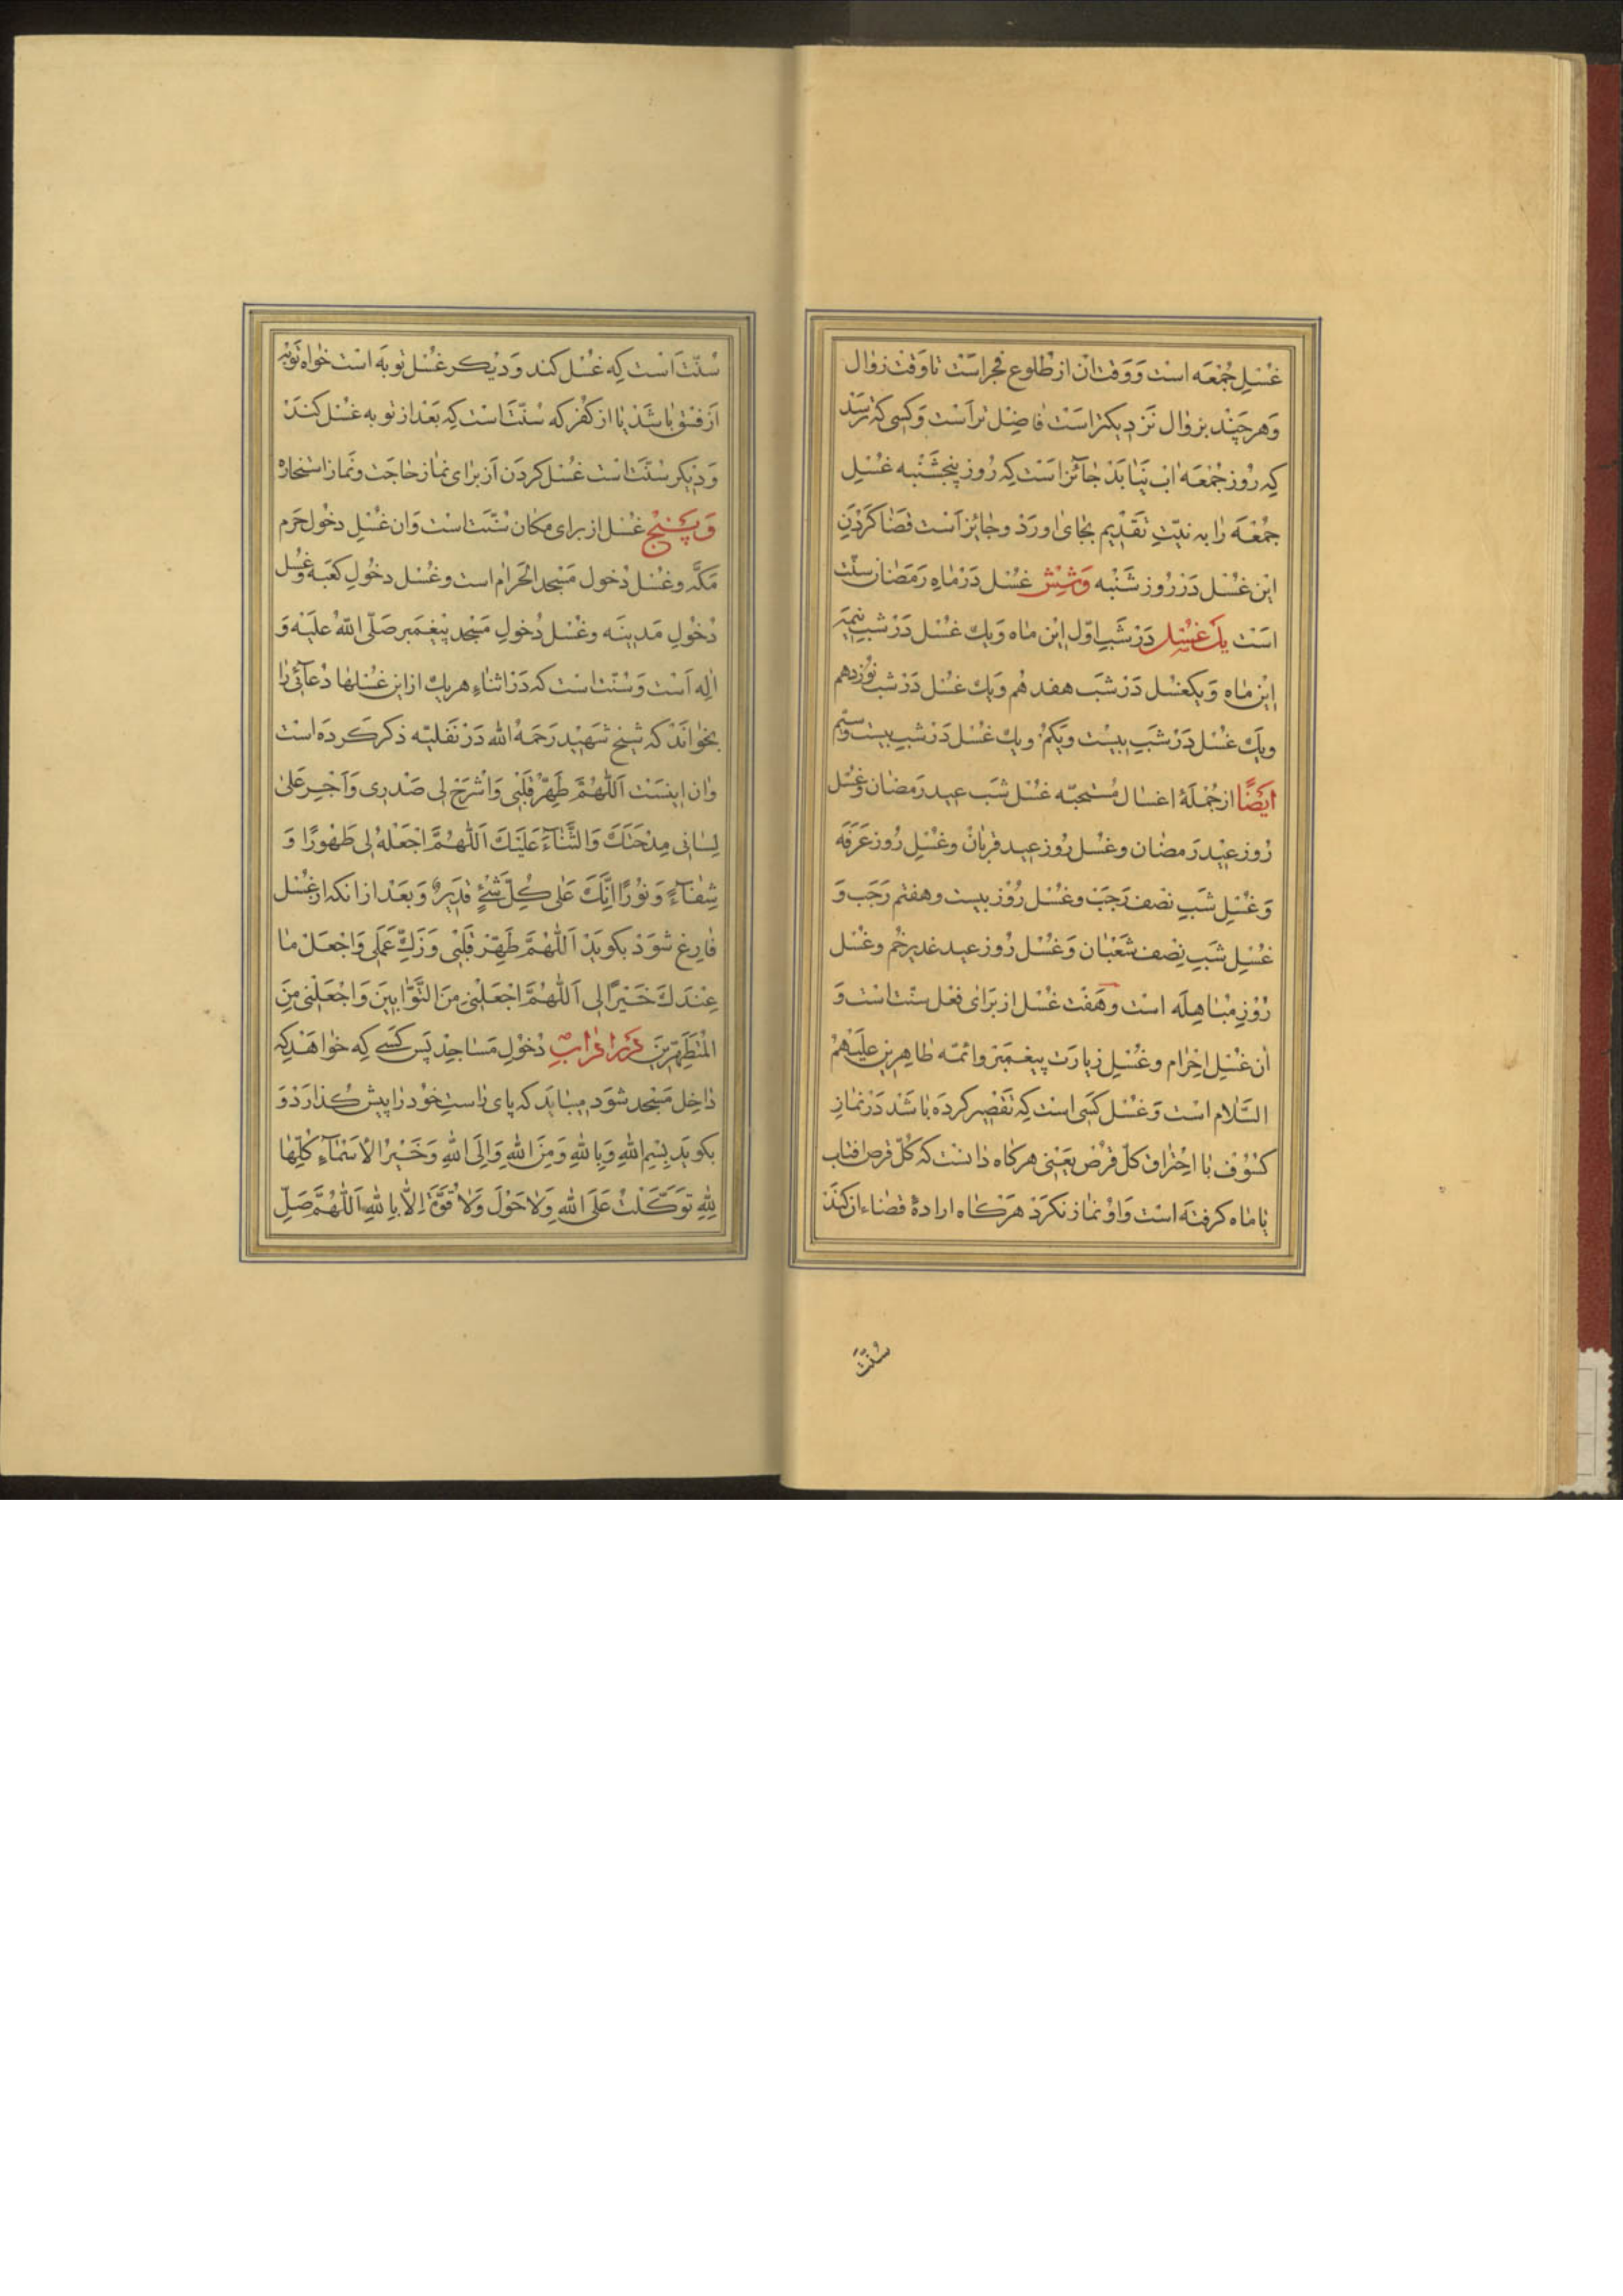 غُسْلِ جُمْعَه است وَ وَقت ان از طُلوعِ فجر است تا وَقت زوال
وَ هر چَند بزوال نَزدیکتر است فاضِل تر است وَ کسی که ترسَد
که رُوز جُمْعَه اب نَیابَد جائز است که رُوز پنجشَنْبه غُسْلِ
جُمْعَه را به نیّتِ تَقْدیم بجای اورَد وجائز است قضا کَرْدَنِ
این غُسْل دَر رُوز شَنْبه وَ شِش غُسْل دَر ماهِ رَمَضان سنّت
اسَت یک غُسْل دَر شَبِ اوّل این ماه وَ یک غُسْل دَر شب نیمَه
این ماه وَ یکغسْل دَر شَب هفدهُم وَ یک غسْل دَر شب نوزدهم
ویک غسْل دَر شَبِ بیسْت ویَکمُ ویک غسْل دَر شبِ بیست وسیّم
ایَضًا از جُمْلَهٔ اغسال مُستَحبّه غُسْل شَب عیدرَمَضان وغُسْل
رُوز عیْدرَمضان وغُسْل رُوز عید قربان وغُسْلِ رُوز عَرَفَه
وَ غُسْلِ شَبِ نصف رَجَب وغُسْل رُوْز بیست وهفتم رَجَب وَ
غُسْلِ شَبِ نِصْف شَعْبان وَ غُسْل رُوز عید غدیرخُم وغُسْل
رُوْزِ مُباهِلَه است وهَفْت غُسْل از بَرای فعْل سنّت اسْت وَ
ان غُسْلِ احْرام وغُسْلِ زیارَت پیغمَبر وائمّه طاهِرین علَیْهمُ
السَّلام است وَ غُسْل کَسی است که تَقْصیر کرده باشَد دَر نمازِ
کسُوْف با احْتراق کلّ قُرْص یَعْنی هرکاه دانست که کُلّ قرص افتاب
یا ماه کرفته است وَ اوْ نماز نَکرَد هَرکاه ارادهٔ قضاء ان کند
سُنَّت
سُنّت است که غُسْل کند وَ دیْکر غُسْل توبَه است خواه تَوْبه
از فسْق باشَد یا از کفْر که سُنّت است که بَعْد از توبه غُسْل کنَد
وَ دیْکر سُنّت است غُسْل کردَن از برای نماز حاجَت ونَماز استخاره
وَ پَنْج غُسْل از برای مَکان سُنّت است وَ ان غُسْلِ دخُول حَرم
مَکَّه وغُسْل دُخول مَسْجد الْحَرام است وغُسْل دخُولِ کعْبَه وغُسْل
دُخُولِ مَدینَه وغُسْل دُخولِ مَسْجد پیْغمَبر صَلّی اللهُ عَلیْه وَ
الِه است وَ سُنّت است که دَر اثناءِ هریک از این غُسْلها دُعائی را
بخوانَد که شیْخ شَهیْد رَحمَهُ الله دَر نَفلیّه ذکر کَرده است
وان اینست اَللّهُمَّ طَهِّرْ قَلْبی وَ اشْرَحْ لی صَدْری وَ اَجْرِ عَلی
لِسانی مِدْحَتَكَ وَ الثَّناءَ عَلَیْكَ اَللّهُمَّ اجْعَلْهُ لی طَهُورًا وَ
شِفاءً وَ نُوْرًا اِنَّكَ عَلی کُلِّ شَیْءٍ قَدیرٌ وَ بَعْد از انکه از غُسْل
فارِغ شوَد بکویَد اَللّهُمَّ طَهِّرْ قَلْبی وَ زَكِّ عَمَلی وَ اجْعَلْ ما
عِنْدَكَ خَیْرًا لی اَللّهُمَّ اجْعَلْنی مِنَ التَّوّابینَ وَ اجْعَلْنی مِنَ
الْمُتَطَهِّرینَ دُخُولِ مَساجِد پَس کَسی که خواهَد که
داخِل مَسْجد شوَد میبایَد که پای راستِ خُود را پیش کُذارَد وَ
بکویَد بِسْمِ اللهِ وَ بِاللهِ وَ مِنَ اللهِ وَ اِلَی اللهِ وَ خَیْرُ الْاَسْماءِ کُلِّها
لِلهِ تَوَکَّلْتُ عَلَی اللهِ وَ لا حَوْلَ وَ لا قُوَّةَ اِلّا بِاللهِ اَللّهُمَّ صَلِّ